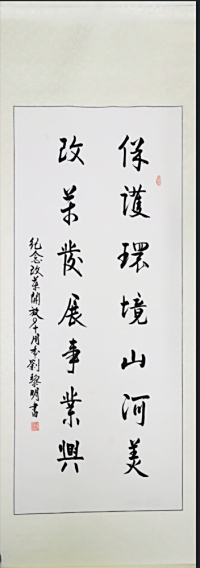 保護環境山河美
改革發展事業興
紀念改革開放四十周年劉黎明書